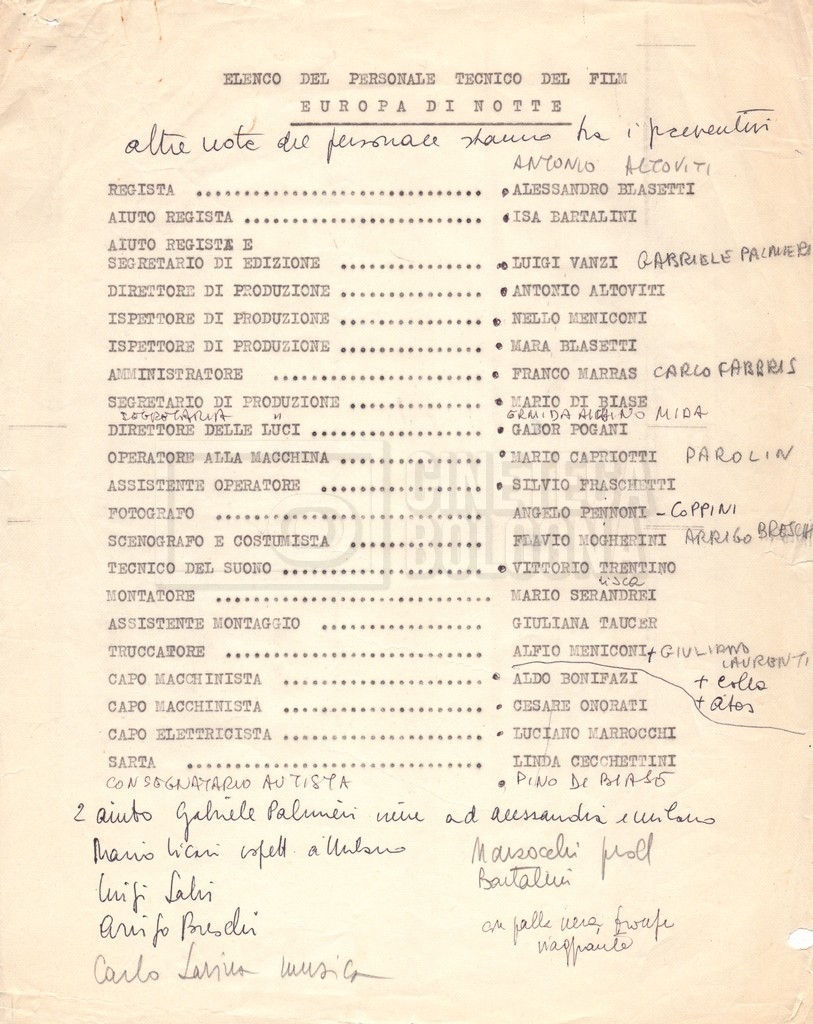 ELENCO DEL PERSONALE TECNICO DEL FILM
EUROPA DI NOTTE
altre note del personale stanno tra i preventivi
ANTONIO ALTOVITI
REGISTA .................................... ALESSANDRO BLASETTI
AIUTO REGISTA .............................. ISA BARTALINI
AIUTO REGISTA E
SEGRETARIO DI EDIZIONE .................. LUIGI VANZI GABRIELE PALMIERI
DIRETTORE DI PRODUZIONE .................. ANTONIO ALTOVITI
ISPETTORE DI PRODUZIONE .................. NELLO MENICONI
ISPETTORE DI PRODUZIONE .................. MARA BLASETTI
AMMINISTRATORE .......................... FRANCO MARRAS CARLO FABBRIS
SEGRETARIO DI PRODUZIONE ................ MARIO DI BIASE
SEGRETARIA " ERMIDA MIDA
DIRETTORE DELLE LUCI ..................... GABOR POGANI
OPERATORE ALLA MACCHINA .................. MARIO CAPRIOTTI PAROLIN
ASSISTENTE OPERATORE .................... SILVIO FRASCHETTI
FOTOGRAFO ................................ ANGELO PENNONI - COPPINI
SCENOGRAFO E COSTUMISTA ................. FLAVIO MOGHERINI ARRIGO BRESCHI
TECNICO DEL SUONO ........................ VITTORIO TRENTINO
MONTATORE ................................ MARIO SERANDREI
ASSISTENTE MONTAGGIO .................... GIULIANA TAUCER
TRUCCATORE ............................... ALFIO MENICONI + GIULIANO LAURENTI
CAPO MACCHINISTA ........................ ALDO BONIFAZI + colla
CAPO MACCHINISTA ........................ CESARE ONORATI + atos
CAPO ELETTRICISTA ....................... LUCIANO MARROCCHI
SARTA .................................... LINDA CECCHETTINI
CONSEGNATARIO AUTISTA PINO DI BIASE
2 aiuto Gabriele Palmieri viene ad alessandria e milano
Mario Licari ispett. a Milano
Luigi Salvi
Arrigo Breschi
Carlo Savina musica
Bartalini
CINETECA BOLOGNA